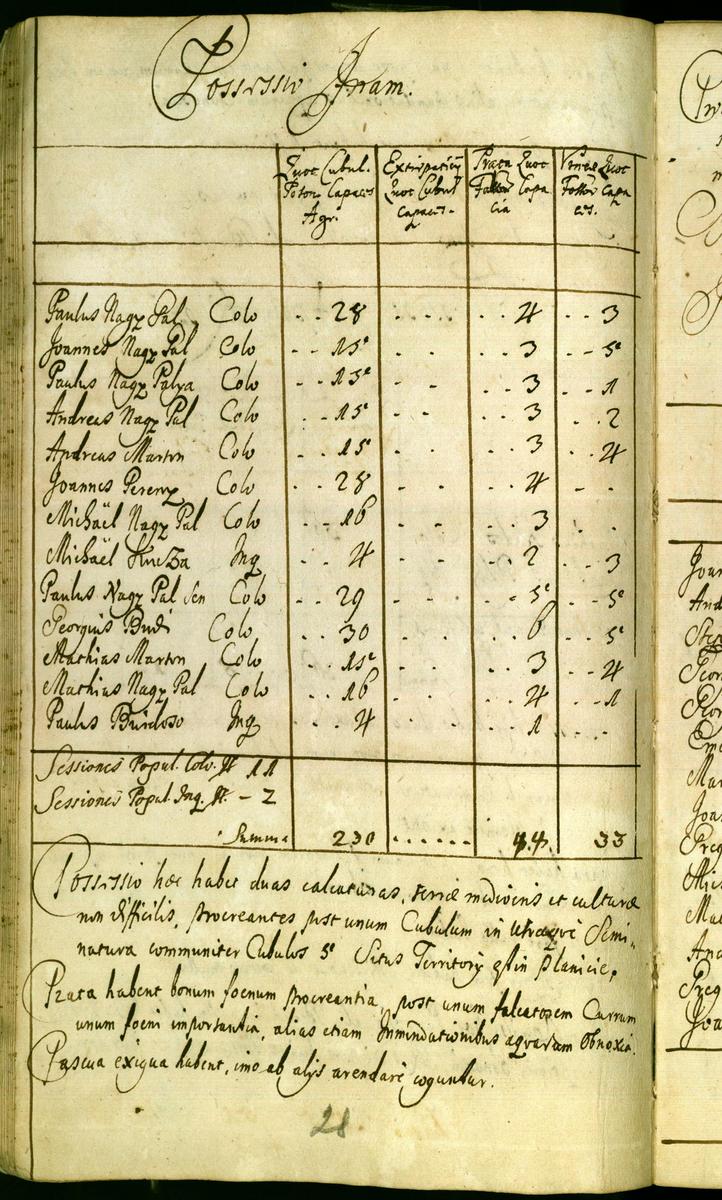 Possessio Iram.
Quot Cubul. Poson. Capaces Agri. Extirpaturÿ Quot Cubul. capaces. Prata Quot Falcat. Capacia Vineæ Quot Fossor. Capaces.
Paulus Nagy Pal Colo 28 4 3
Joannes Nagy Pal Colo 15 3 5
Paulus Nagy Palya Colo 15 3 1
Andreas Nagy Pal Colo 15 3 2
Andreas Martin Colo 15 3 4
Joannes Ferenz Colo 28 4
Michaël Nagy Pal Colo 16 3
Michaël Kucza Inq 4 2 3
Paulus Nagy Pal Sen Colo 29 5 5
Georgius Budi Colo 30 6 5
Mathias Martin Colo 15 3 4
Mathias Nagy Pal Colo 16 4 1
Paulus Buidoso Inq 4 1
Sessiones Popul. Colo. No 11
Sessiones Popul. Inq. No. - 2
Summa 230 44. 33
Possessio hæc habet duas calcaturas, terræ mediocris et culturæ
non difficilis, procreantes post unum Cubulum in utraqve Semi-
natura communiter Cubulos 5 Situs Territorÿ est in planicie.
Prata habent bonum foenum procreantia, post unum falcatorem Currum
unum foeni importantia, alias etiam Inundationibus aqvarum obnoxia.
Pascua exigua habent, imo ab alÿs arendare coguntur.
28